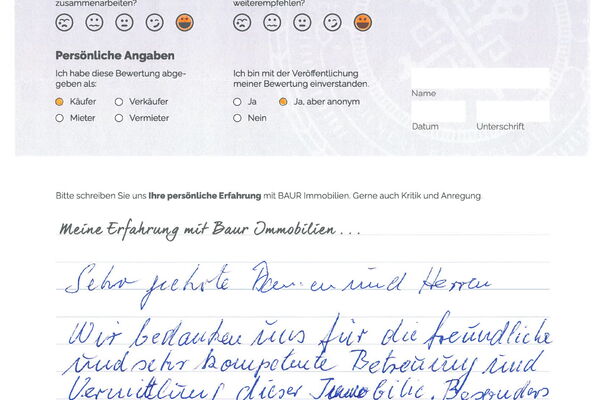 zusammenarbeiten?
weiterempfehlen?
Persönliche Angaben
Ich habe diese Bewertung abge-
geben als:
Käufer
Verkäufer
Mieter
Vermieter
Ich bin mit der Veröffentlichung
meiner Bewertung einverstanden.
Ja
Ja, aber anonym
Nein
Name
Datum
Unterschrift
Bitte schreiben Sie uns Ihre persönliche Erfahrung mit BAUR Immobilien. Gerne auch Kritik und Anregung.
Meine Erfahrung mit Baur Immobilien...
Sehr geehrte Damen und Herren
Wir bedanken uns für die freundliche
und sehr kompetente Betreuung und
Vermittlung dieser Immobilie. Besonders